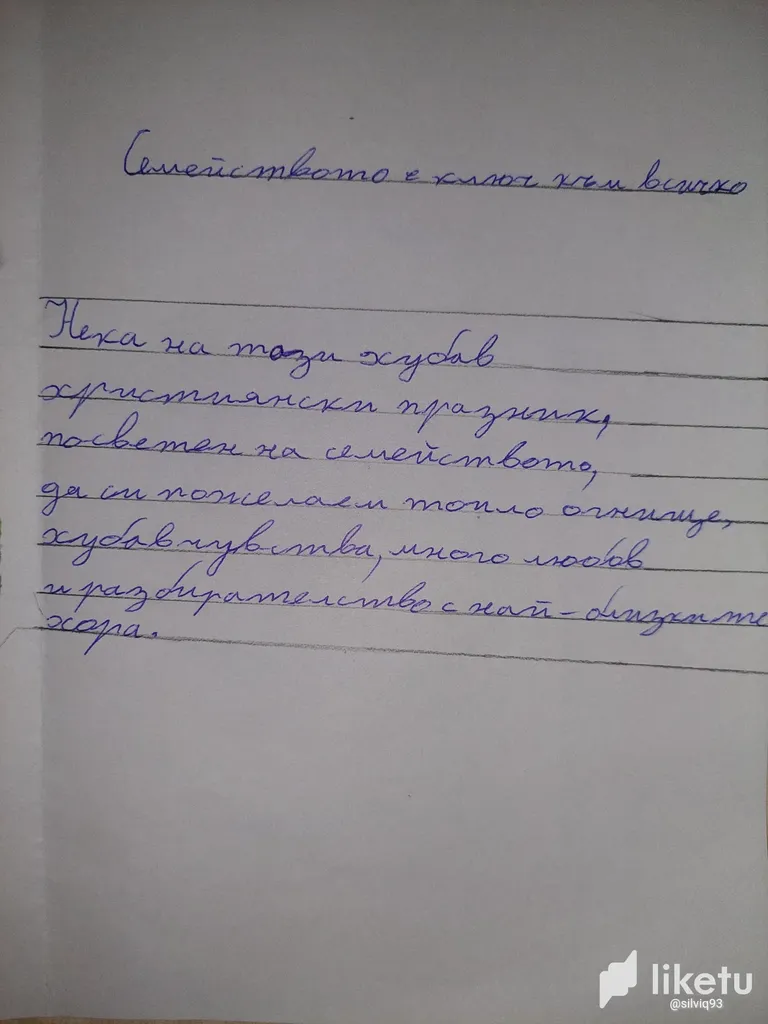 Семейството е ключ към всичко
Нека на този хубав
християнски празник,
посветен на семейството,
да си пожелаем топло огнище,
хубави чувства, много любов
и разбирателство с най-близките
хора.
liketu
@silviq93